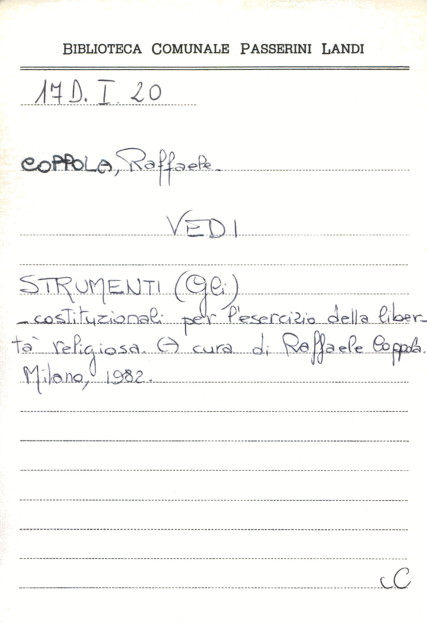 BIBLIOTECA COMUNALE PASSERINI LANDI
17D. I. 20
COPPOLA, Raffaele.
VEDI
STRUMENTI (Gli)
-costituzionali per l'esercizio della liber-
tà religiosa. (-) cura di Raffaele Coppola.
Milano, 1982.